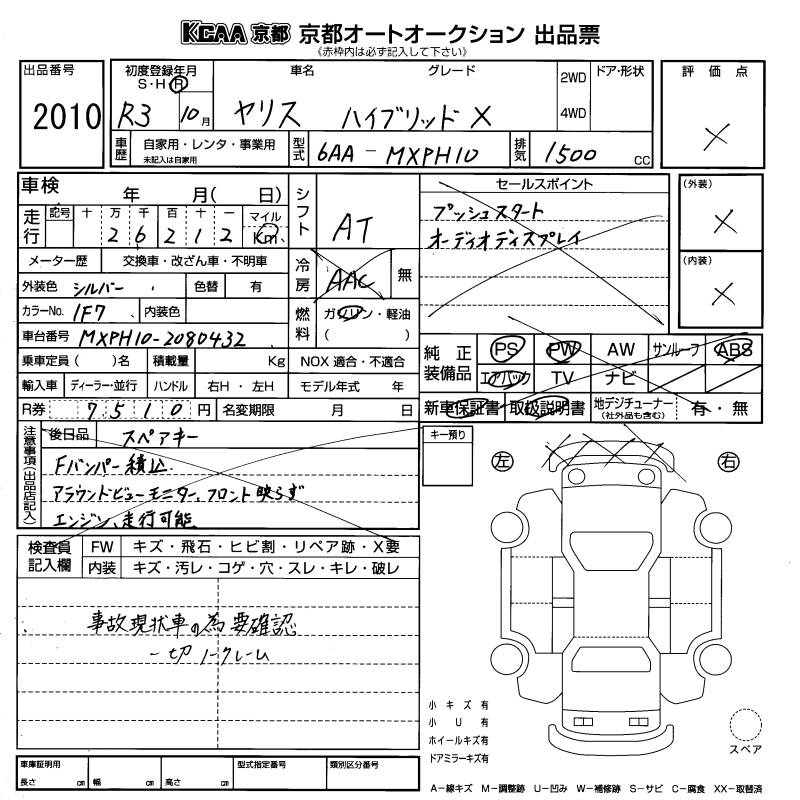 KCAA 京都 京都オートオークション 出品票
《赤枠内は必ず記入して下さい》
出品番号 初度登録年月 車名 グレード 2WD ドア・形状 評価点
S・H・R
2010 R3 10月 ヤリス ハイブリッド X 4WD ×
車歴 自家用・レンタ・事業用 型式 6AA-MXPH10 排気 1500 CC
未記入は自家用
車検 年 月( 日) シフト AT セールスポイント (外装)
走行 記号 十 万 千 百 十 一 マイル プッシュスタート ×
2 6 2 1 2 Km オーディオディスプレイ
メーター歴 交換車・改ざん車・不明車 冷房 AAC 無 (内装)
外装色 シルバー 色替 有 ×
カラーNo. 1F7 内装色 燃料 ガソリン・軽油
車台番号 MXPH10-2080432 ( )
乗車定員 ( )名 積載量 Kg NOX 適合・不適合 純正装備品 PS PW AW サンルーフ ABS
輸入車 ディーラー・並行 ハンドル 右H・左H モデル年式 年 エアバック TV ナビ
R券 7510円 名変期限 月 日 新車保証書 取扱説明書 地デジチューナー (社外品も含む) 有・無
注意事項(出品店記入) 後日品 スペアキー キー預り
Fバンパー積込 左 右
アラウンドビューモニター、フロント映らず
エンジン、走行可能
検査員記入欄 FW キズ・飛石・ヒビ割・リペア跡・X要
内装 キズ・汚レ・コゲ・穴・スレ・キレ・破レ
事故現状車の為要確認
一切ノークレーム
小キズ有
小U有
ホイールキズ有
ドアミラーキズ有
スペア
車庫証明用 型式指定番号 類別区分番号
長さ cm 幅 cm 高さ cm
A-線キズ M-調整跡 U-凹み W-補修跡 S-サビ C-腐食 XX-取替済